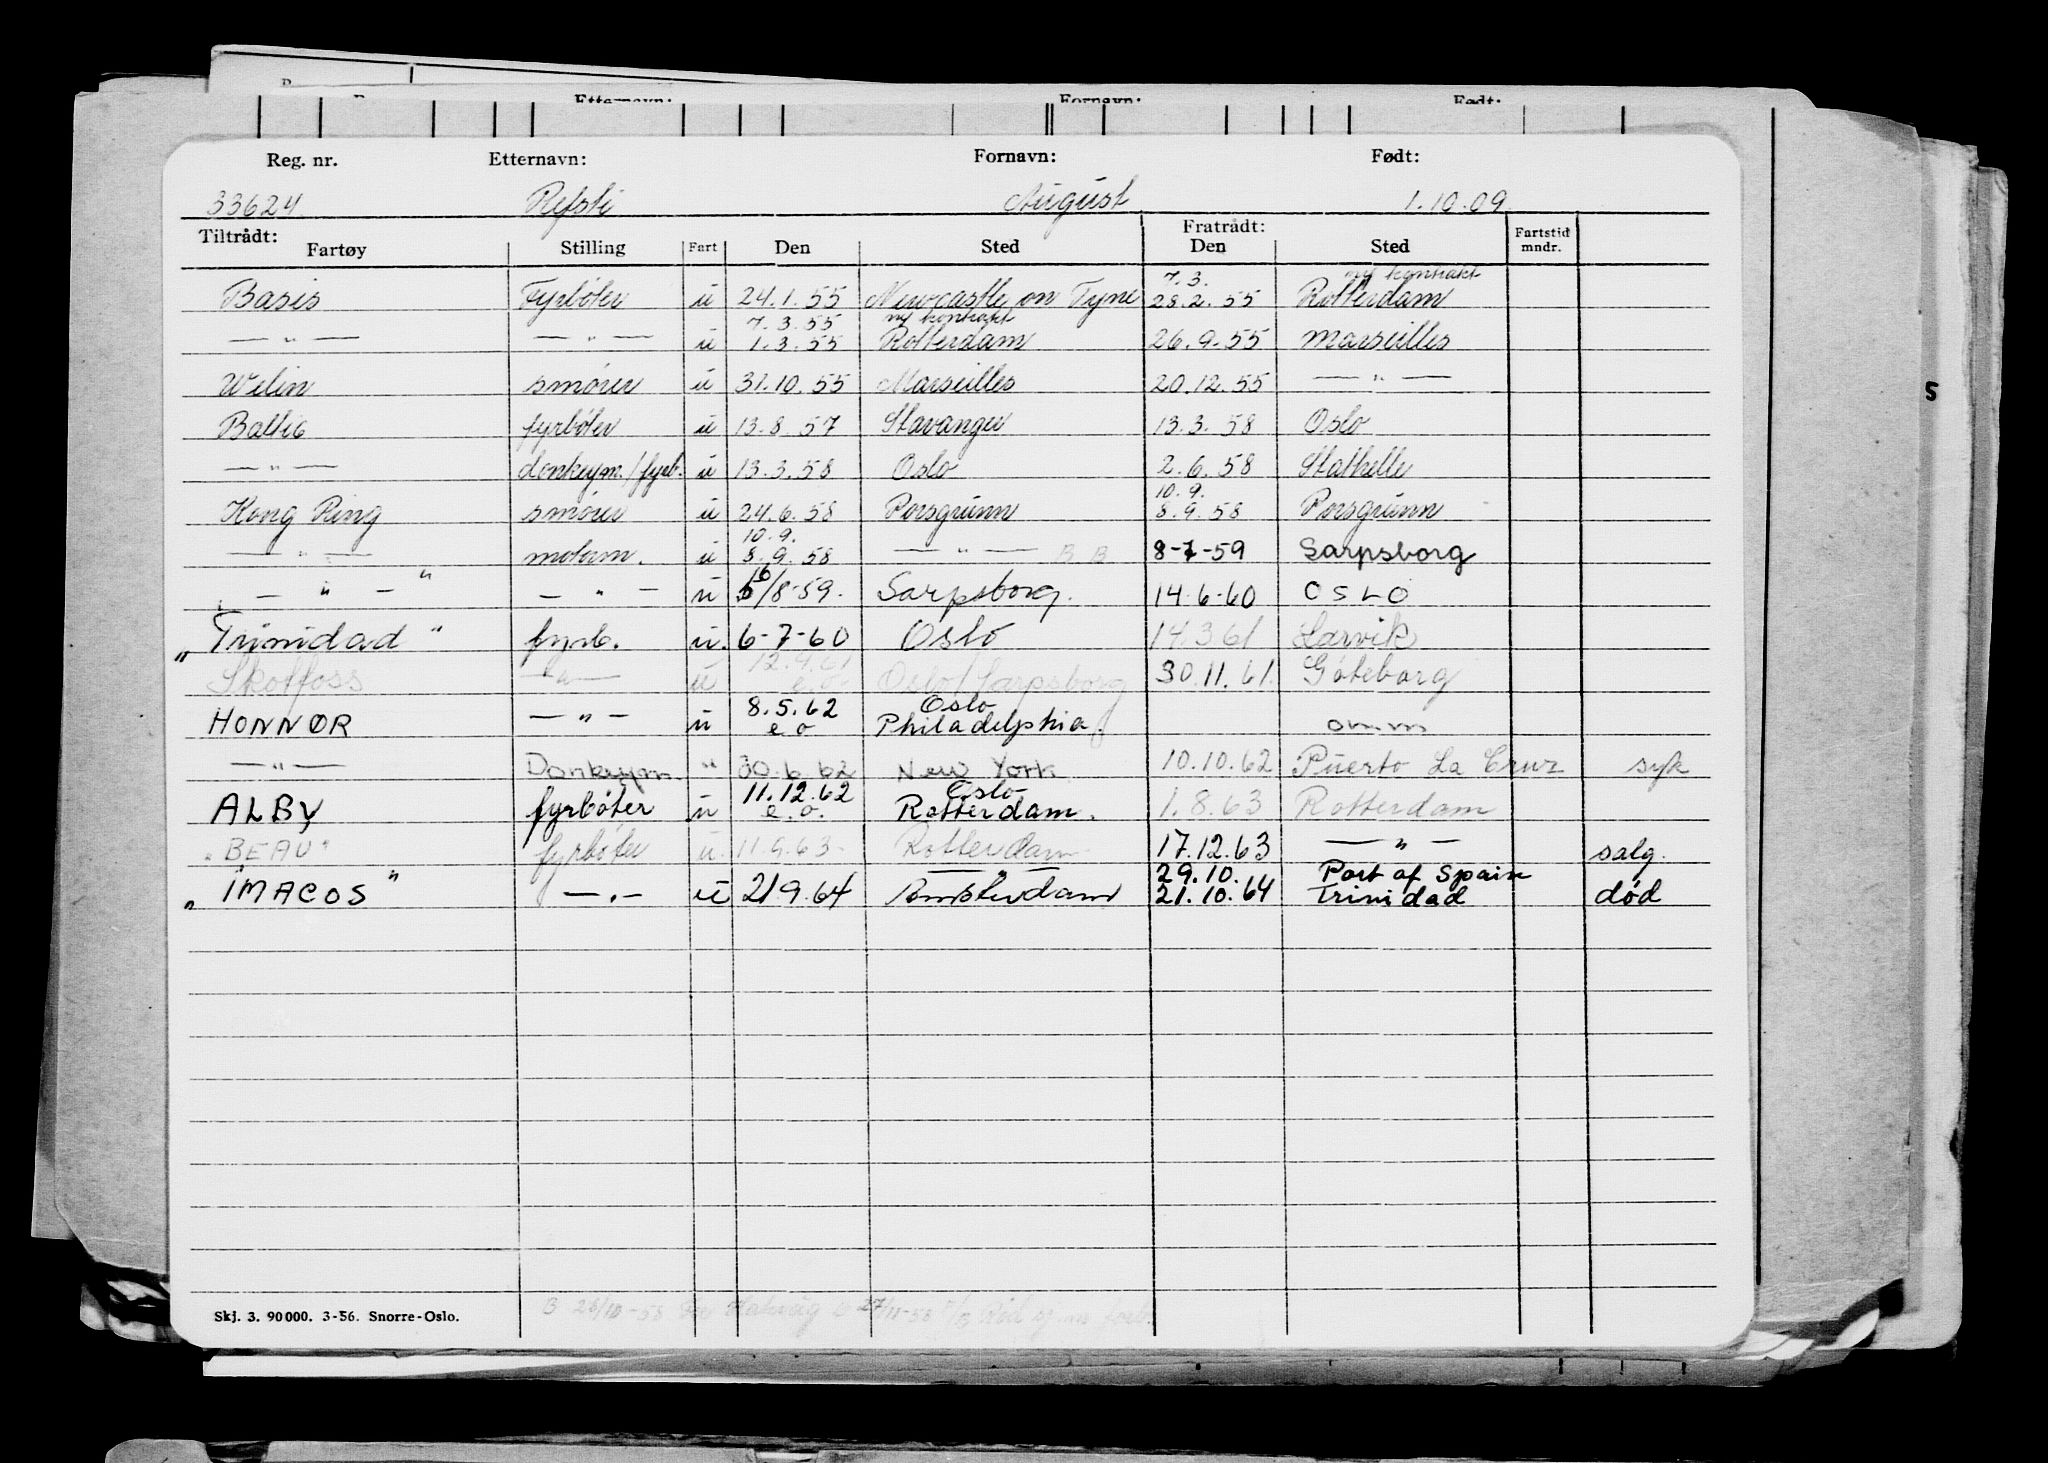 Etternavn: Fornavn: Født:
Reg. nr. Etternavn: Fornavn: Født:
33624 Refsti August 1.10.09.
Tiltrådt: Fratrådt:
Fartøy Stilling Fart Den Sted Den Sted Fartstid mndr.
7.3. ny kontrakt
Basis Fyrbøter u 24.1.55 Newcastle on Tyne 28.2.55 Rotterdam
7.3.55 ny kontrakt
— " — — " — u 1.3.55 Rotterdam 26.9.55 Marseilles
Welin smører u 31.10.55 Marseilles 20.12.55 — " —
Baltic fyrbøter u 13.8.57 Stavanger 13.3.58 Oslo
— " — donkeym./fyrb. u 13.3.58 Oslo 2.6.58 Stathelle
10.9.
Kong Ring smører u 24.6.58 Porsgrunn 8.9.58 Porsgrunn
10.9.
— " — motorm. u 8.9.58 — " — B B 8-7-59 Sarpsborg
— " — " — " — u 16/8-59. Sarpsborg. 14-6-60 OSLO
"Trinidad" fyrb. u. 6-7-60 Oslo 14.3.61 Larvik
12.4.61
Skotfoss — " — u e.o. Oslo/Sarpsborg 30.11.61. Göteborg
8.5.62 Oslo
HONNØR — " — u e o Philadelphia. omm
— " — Donkeym. " 30.6.62 New York 10.10.62 Puerto La Cruz syk
11.12.62 Oslo
ALBY fyrbøter u e.o. Rotterdam. 1.8.63 Rotterdam
"BEAU" fyrbøter u. 11.9.63- Rotterdam 17.12.63 — " — salg.
— " — 29.10. Port of Spain
"IMACOS" — " — u 21.9.64 Amsterdam 21.10.64 Trinidad død
S
Skj. 3. 90 000. 3-56. Snorre-Oslo.
B 26/10-58 27/11-58